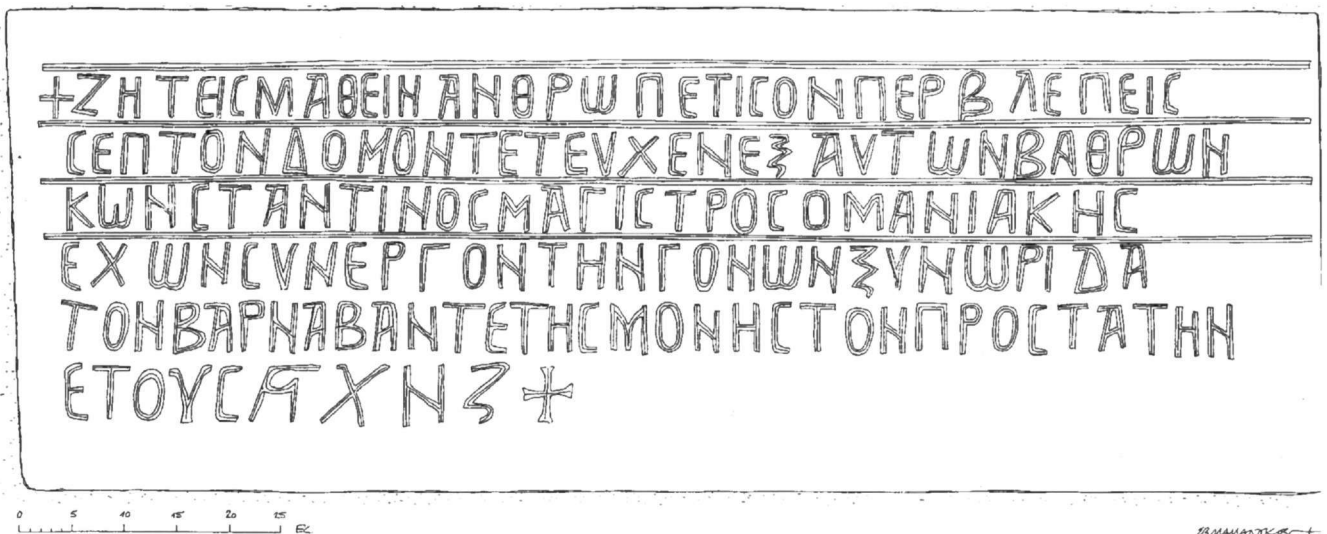 +ΖΗΤΕΙϹΜΑΘΕΙΝΑΝΘΡΩΠΕΤΙϹΟΝΠΕΡΒΛΕΠΕΙϹ
ϹΕΠΤΟΝΔΟΜΟΝΤΕΤΕΥΧΕΝΕΞΑΥΤΩΝΒΑΘΡΩΝ
ΚΩΝϹΤΑΝΤΙΝΟϹΜΑΓΙϹΤΡΟϹΟΜΑΝΙΑΚΗϹ
ΕΧΩΝϹΥΝΕΡΓΟΝΤΗΝΓΟΝΩΝΞΥΝΩΡΙΔΑ
ΤΟΝΒΑΡΝΑΒΑΝΤΕΤΗϹΜΟΝΗϹΤΟΝΠΡΟϹΤΑΤΗΝ
ΕΤΟΥϹΑΧΝΖ+
0 5 10 15 20 25 ΕΚ.